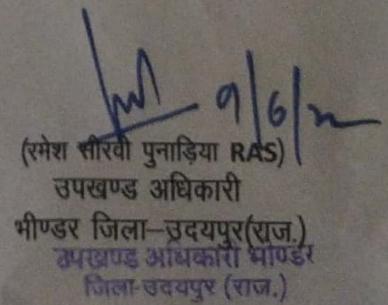 9/6/22
(रमेश सीरवी पुनाड़िया RAS)
उपखण्ड अधिकारी
भीण्डर जिला–उदयपुर(राज.)
उपखण्ड अधिकारी भीण्डर
जिला-उदयपुर (राज.)